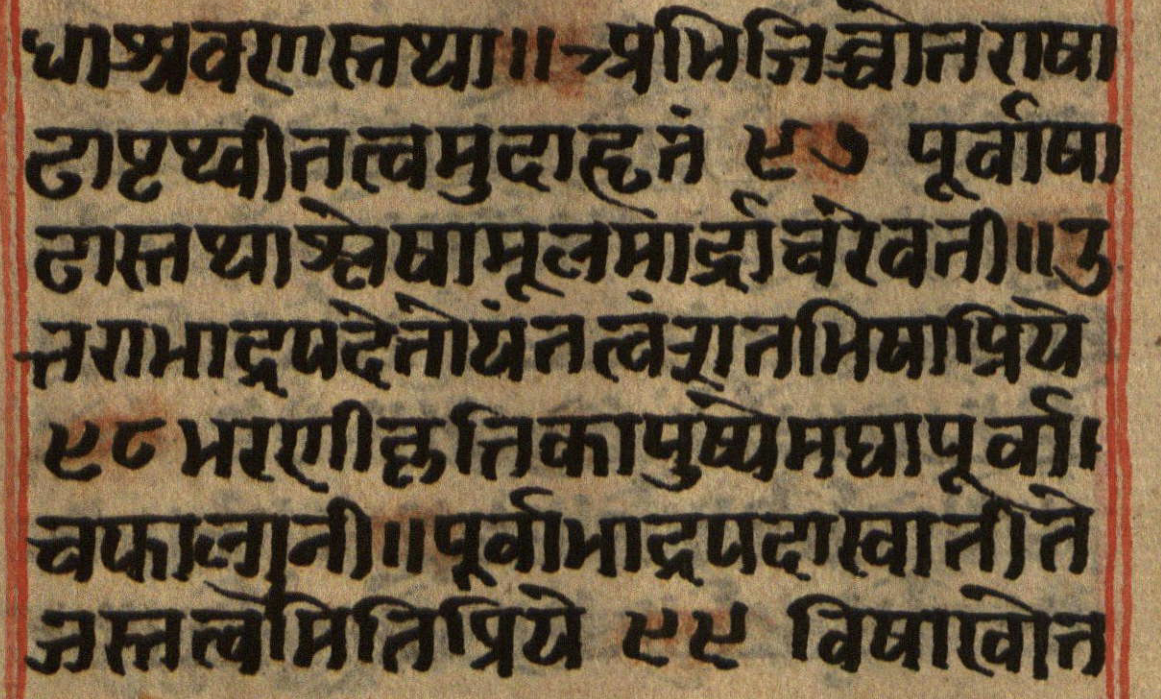 धाश्रवणस्तथा॥ अभिजिच्चोत्तराषा
ढापृथ्वीतत्वमुदाहृतं ९७ पूर्वाषा
ढास्तथाश्लेषामूलमार्द्राचरेवती॥उ
त्तराभाद्रपदेतोयंतत्वंशतभिषाप्रिये
९८ भरणीकृत्तिकापुष्येमघापूर्वा।
चफाल्गुनी॥पूर्वाभाद्रपदास्वातीते
जस्तत्वमितिप्रिये ९९ विषाखोत्त